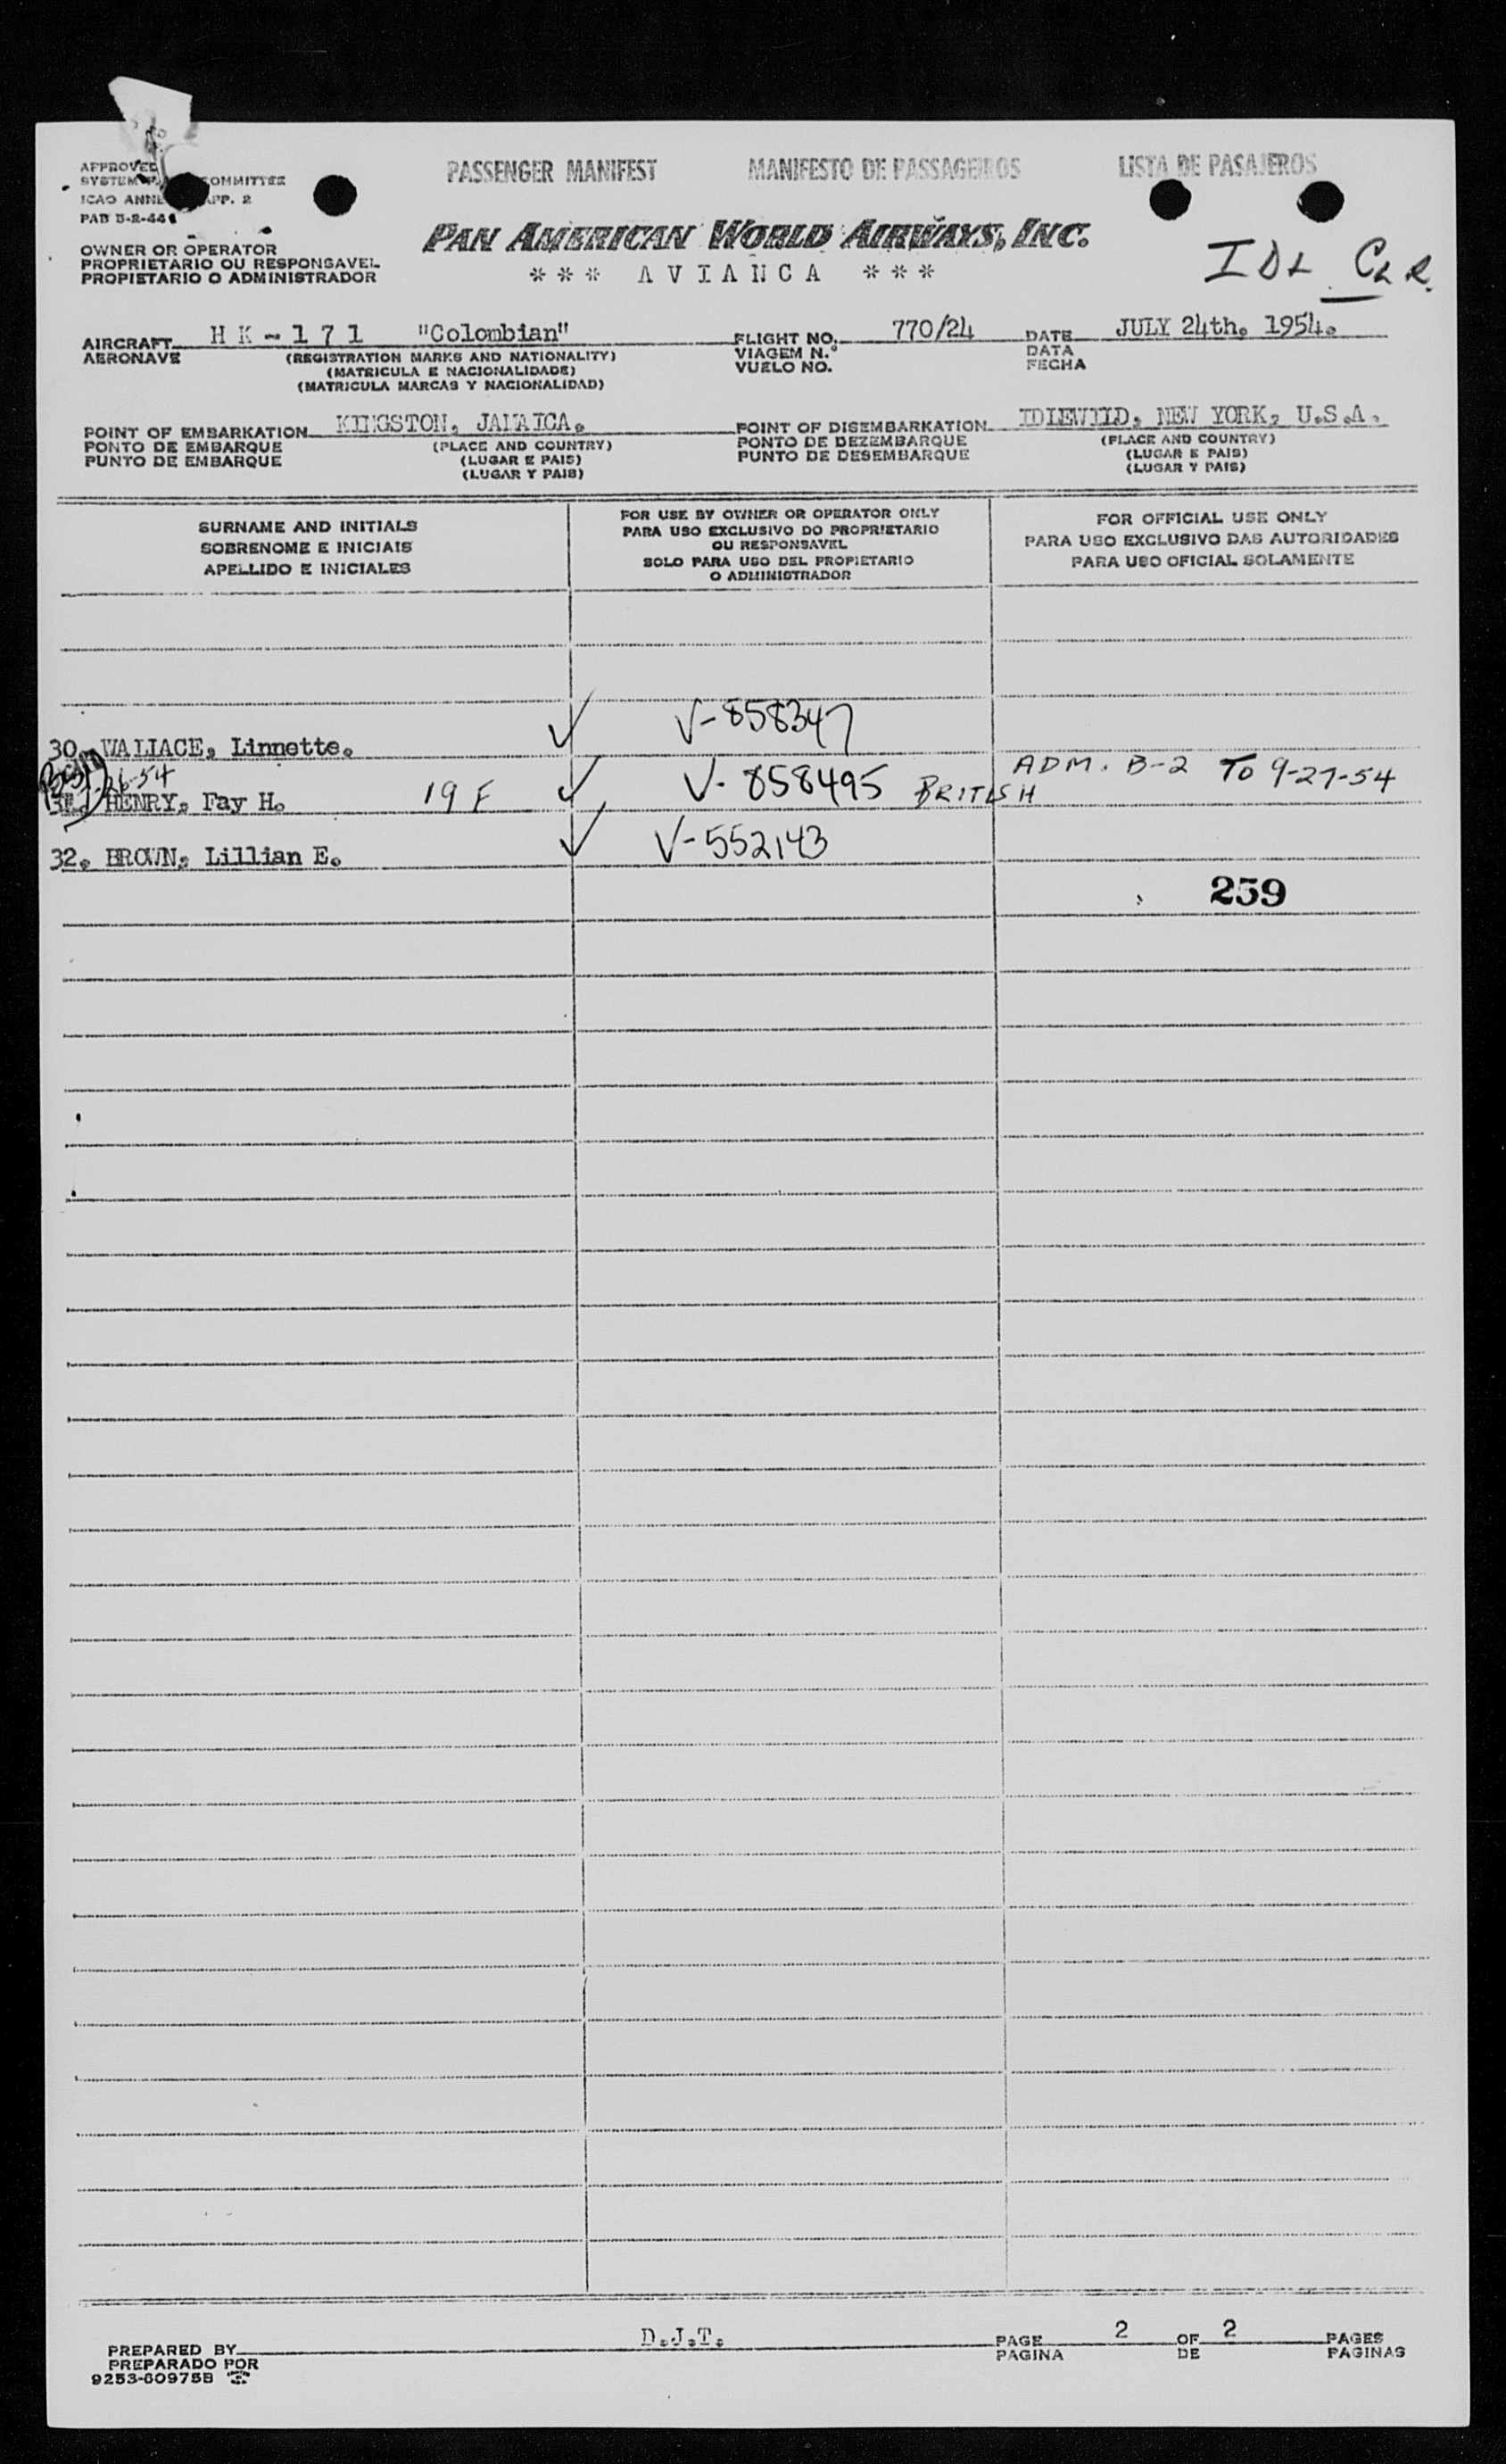 PASSENGER MANIFEST MANIFESTO DE PASSAGEIROS LISTA DE PASAJEROS
APPROVED
SYSTEM COMMITTEE
ICAO ANNE APP. 2
PAB 5-2-44
PAN AMERICAN WORLD AIRWAYS, INC.
*** AVIANCA ***
IDL CLR.
OWNER OR OPERATOR
PROPRIETARIO OU RESPONSAVEL
PROPIETARIO O ADMINISTRADOR
AIRCRAFT HK-171 "Colombian" FLIGHT NO. 770/24 DATE JULY 24th, 1954.
AERONAVE (REGISTRATION MARKS AND NATIONALITY) VIAGEM N.° DATA
(MATRICULA E NACIONALIDADE) VUELO NO. FECHA
(MATRICULA MARCAS Y NACIONALIDAD)
POINT OF EMBARKATION KINGSTON, JAMAICA. POINT OF DISEMBARKATION IDLEWILD, NEW YORK, U.S.A.
PONTO DE EMBARQUE (PLACE AND COUNTRY) PONTO DE DEZEMBARQUE (PLACE AND COUNTRY)
PUNTO DE EMBARQUE (LUGAR E PAIS) PUNTO DE DESEMBARQUE (LUGAR E PAIS)
(LUGAR Y PAIS) (LUGAR Y PAIS)
SURNAME AND INITIALS
SOBRENOME E INICIAIS
APELLIDO E INICIALES
FOR USE BY OWNER OR OPERATOR ONLY
PARA USO EXCLUSIVO DO PROPRIETARIO
OU RESPONSAVEL
SOLO PARA USO DEL PROPIETARIO
O ADMINISTRADOR
FOR OFFICIAL USE ONLY
PARA USO EXCLUSIVO DAS AUTORIDADES
PARA USO OFICIAL SOLAMENTE
30. WALLACE, Linnette. ✓ V-858347
31. HENRY, Fay H. 19 F ✓ V-858495 BRITISH ADM. B-2 TO 9-27-54
32. BROWN, Lillian E. ✓ V-552143
259
PREPARED BY D.J.T. PAGE 2 OF 2 PAGES
PREPARADO POR PAGINA DE PAGINAS
9253-60975B